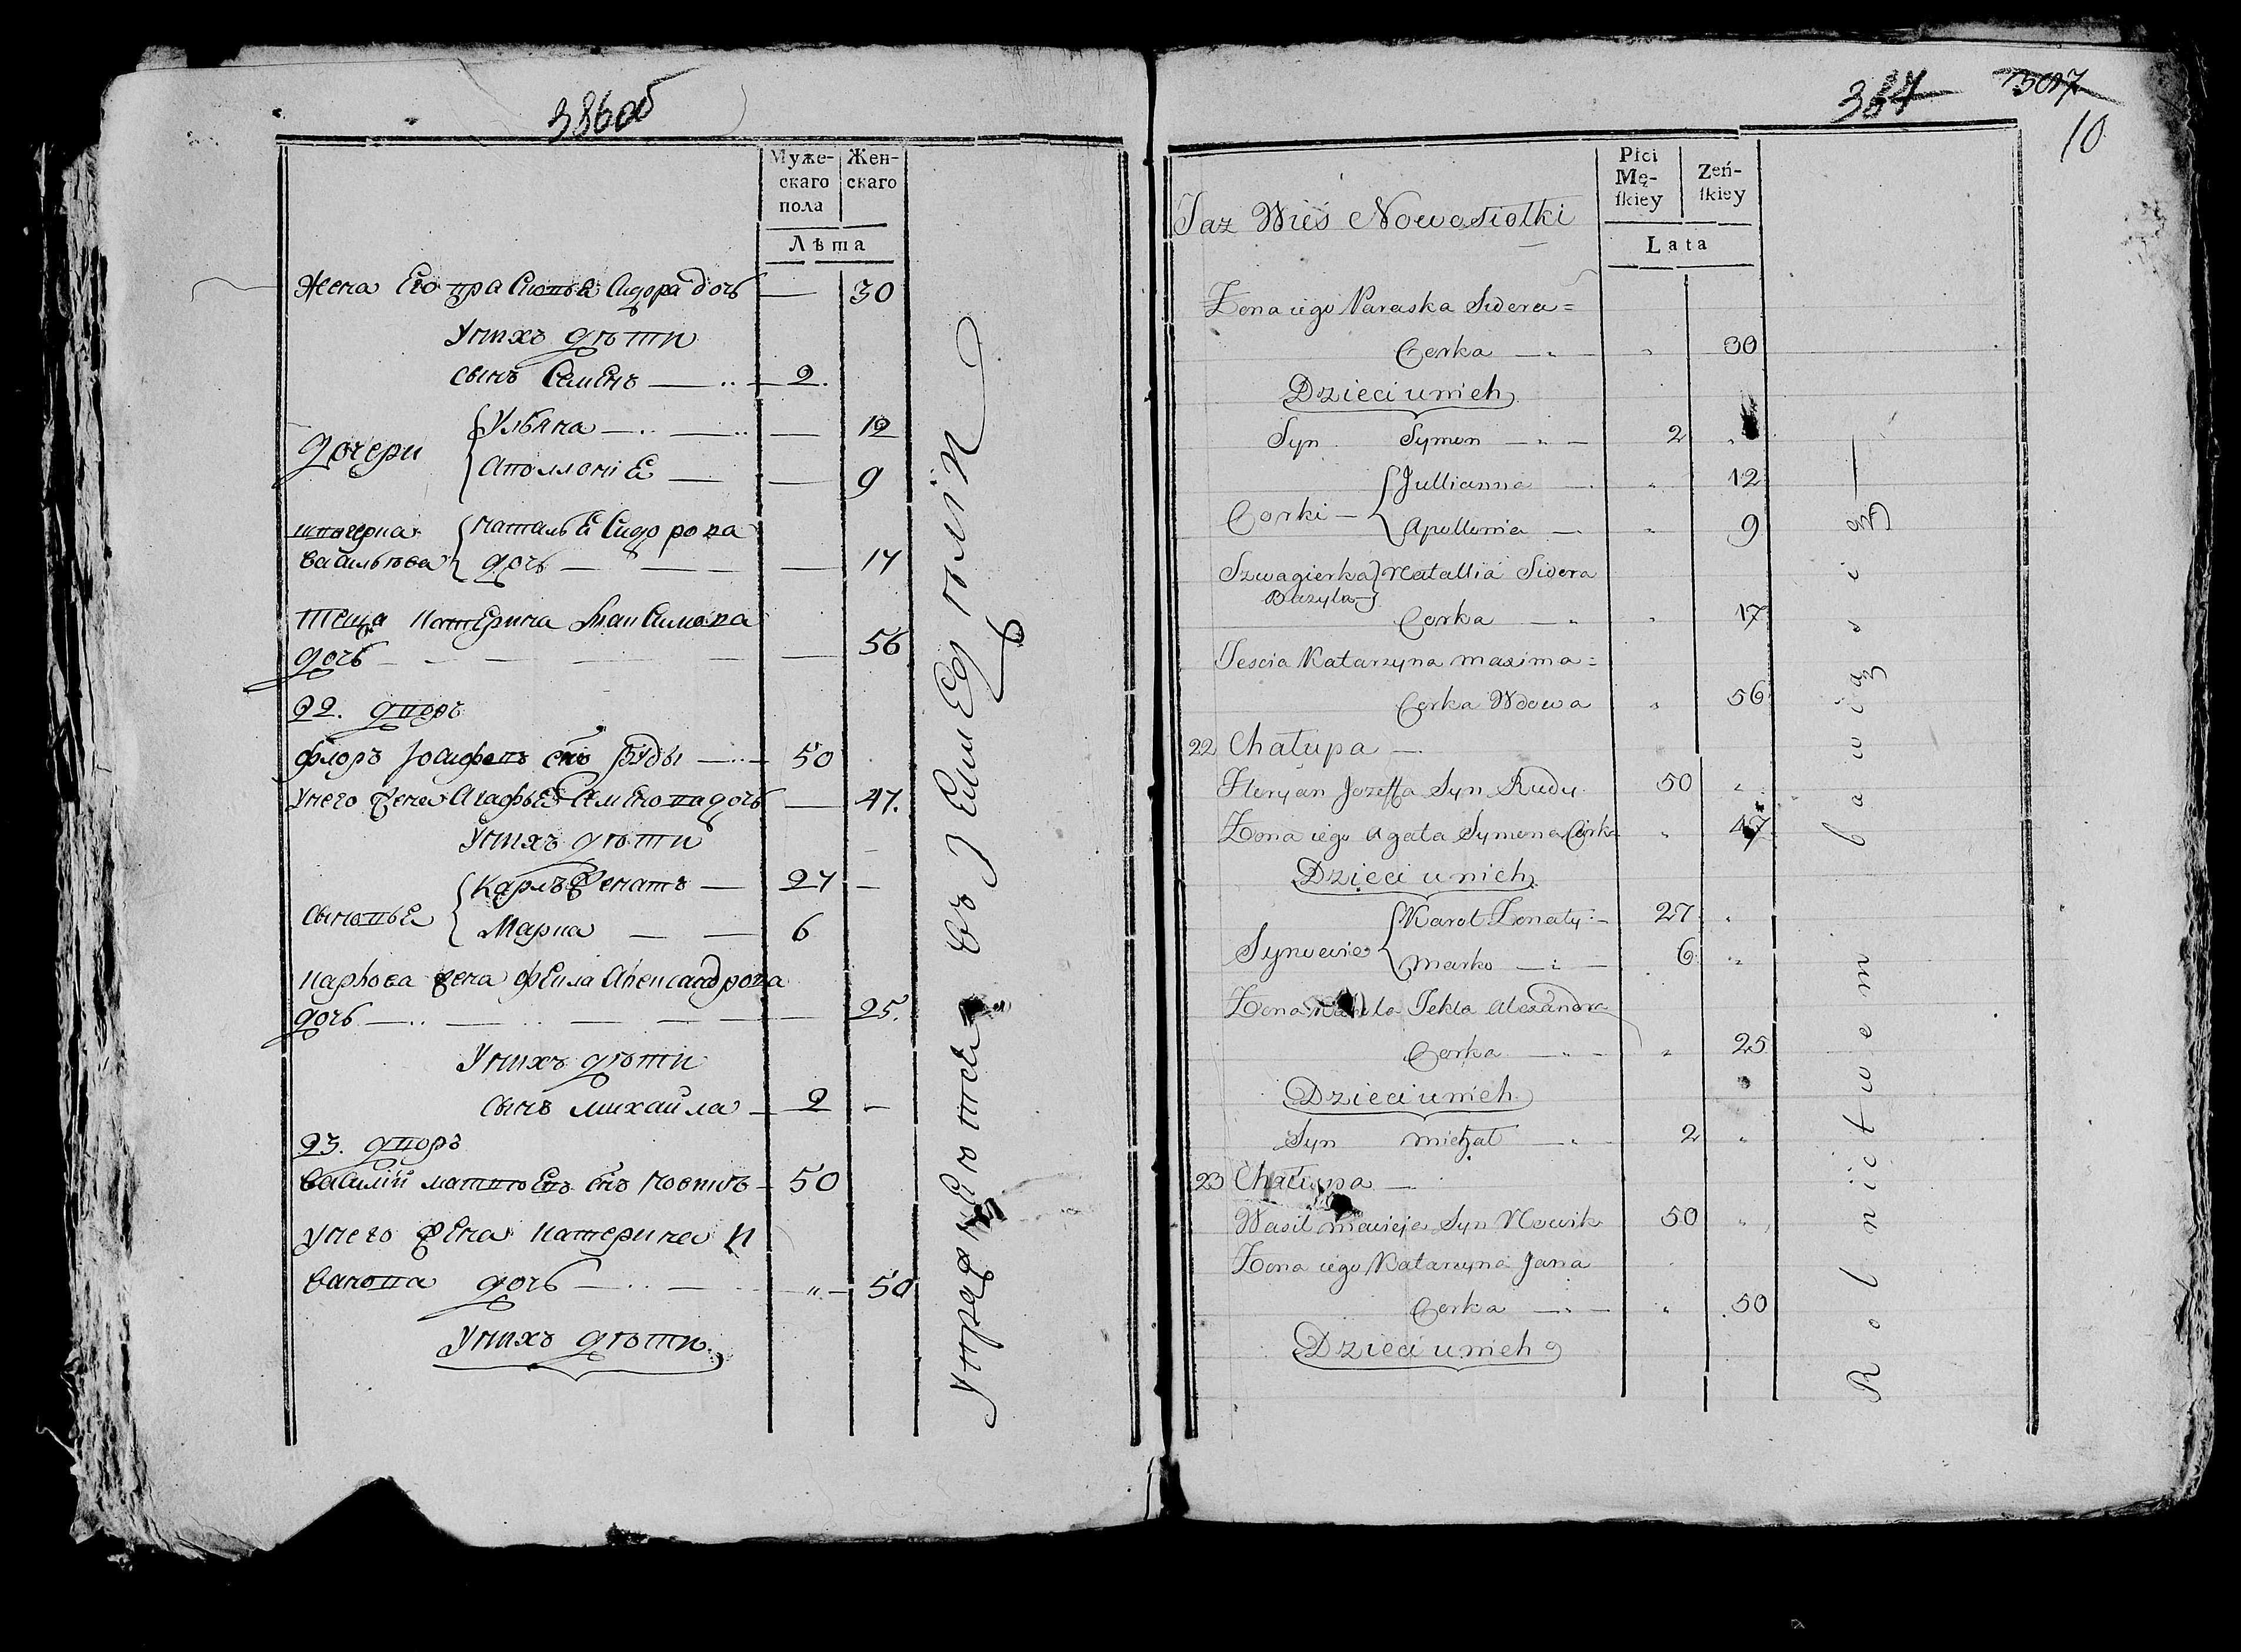 386об
Муже-
скаго
пола
Жен-
скаго
Лѣта
Жена Его Прасковья Сидора дочь — 30
У нихъ дѣти
сынъ Семенъ — 2.
Дочери
Ульяна — 12
Аполлонiя — 9
швагерка
Васильева
Наталья Сидорова
дочь — 17
теща Катерина Максимова
дочь — 56
22. дворъ
Флоръ Iосифовъ снъ Руды — 50
У него жена Агафья Семенова дочь — 47.
У нихъ дѣти
Сыновья
Карлъ женатъ — 27 —
Марка — 6
Карлова жена Фекла Александрова
дочь — 25.
У нихъ дѣти
Сынъ Михайла — 2 —
23. дворъ
Василiй Матвѣевъ снъ Новикъ — 50
У него жена Катерина И
ванова дочь — 50
У нихъ дѣти
Упражняется въ Земледѣлiи
387 507
10
Płci
Mę-
ſkiey
Zeń-
ſkiey
Lata
Taz Wieś Nowosiołki
Zona iego Paraska Sidera =
Corka — " 30
Dzieci u nich
Syn Symon — 2 "
Corki —
Jullianna — " 12
Apollonia — " 9
Szwagierka
Bazyla —
Natallia Sidora
Corka — " 17
Tescia Katarzyna Maxima =
Corka Wdowa " 56
22 Chałupa —
Floryan Jozeffa Syn Rudy 50 "
Zona iego Agata Symona Corka " 47
Dzieci u nich
Synowie
Karol Zonaty — 27 "
Marko — 6 "
Zona Tekla Alexandra
Corka — " 25
Dzieci u nich
Syn Michał — 2 "
23 Chałupa —
Wasil Macieja Syn Nowik 50 "
Zona iego Katarzyna Jana
Corka — " 50
Dzieci u nich
Rolnictwem bawią się —